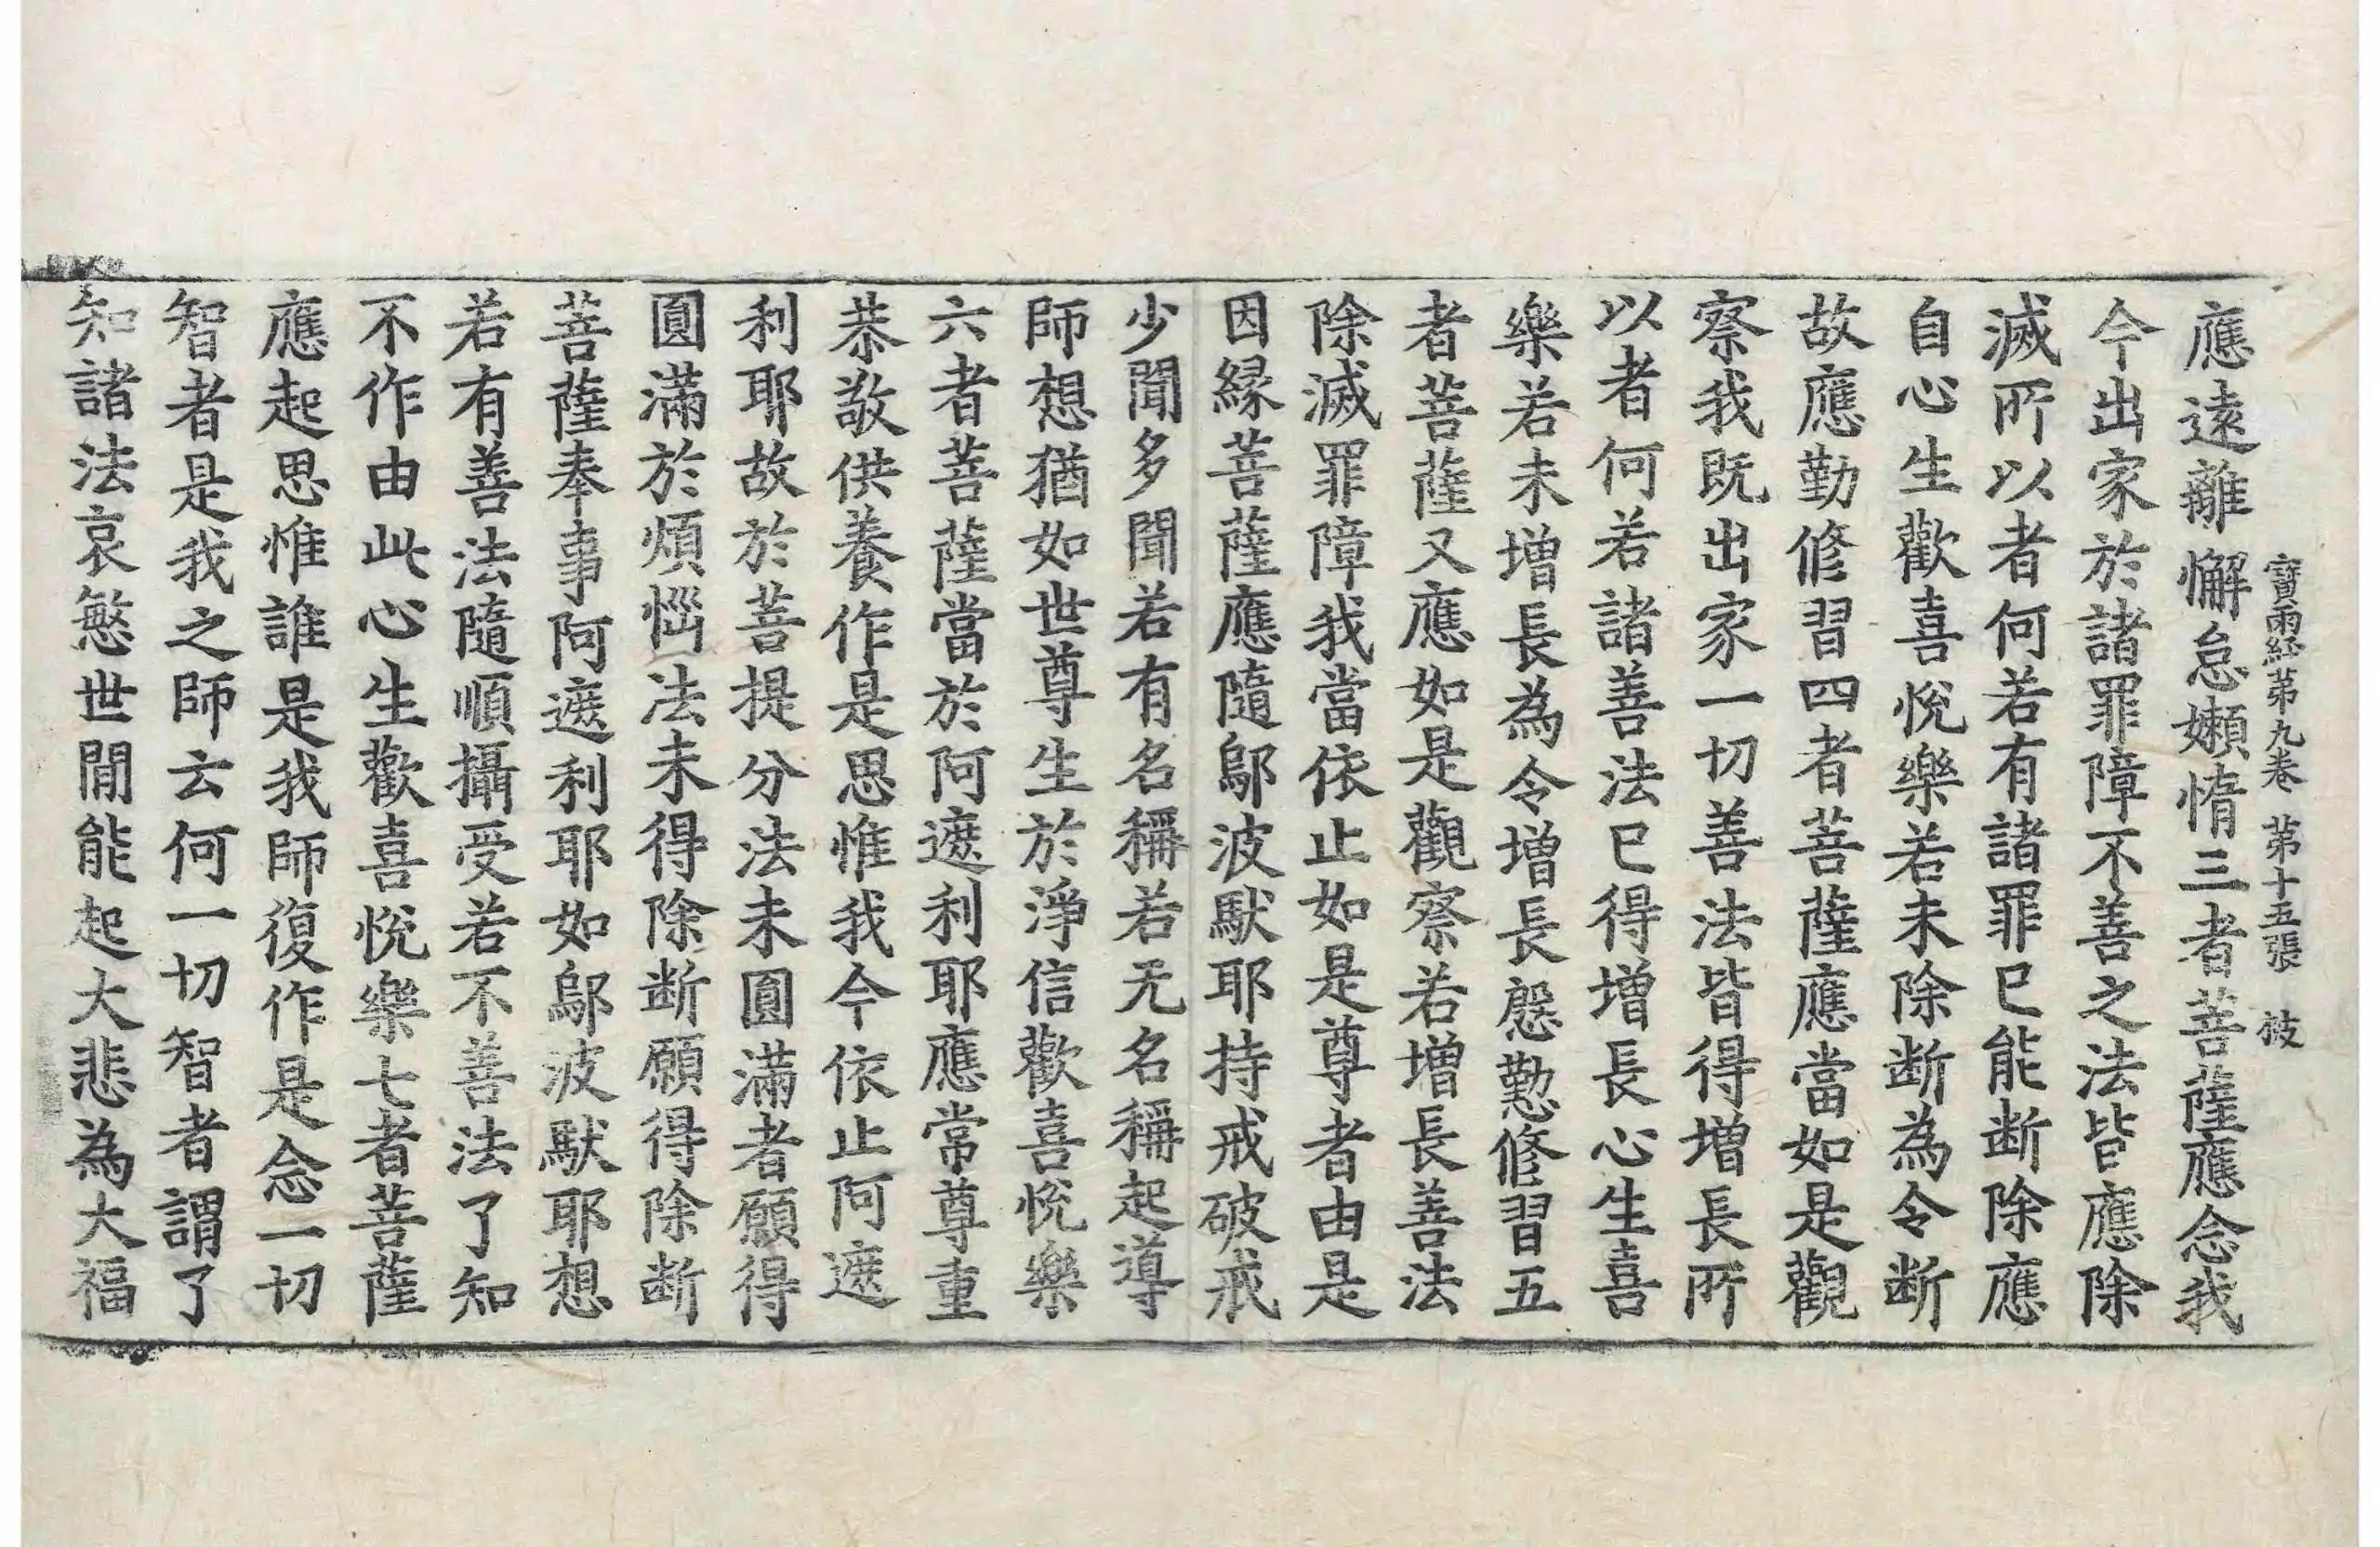 寶雨経苐九卷 苐十五張 彼
應遠離懈怠嬾惰三者菩薩應念我
今出家於諸罪障不善之法皆應除
滅所以者何若有諸罪已能断除應
自心生歡喜悅樂若未除断為令断
故應勤修習四者菩薩應當如是觀
察我既出家一切善法皆得增長所
以者何若諸善法已得增長心生喜
樂若未增長為令增長慇懃修習五
者菩薩又應如是觀察若增長善法
除滅罪障我當依止如是尊者由是
因縁菩薩應隨鄔波馱耶持戒破戒
少聞多聞若有名稱若无名稱起導
師想猶如世尊生於淨信歡喜悅樂
六者菩薩當於阿遮利耶應常尊重
恭敬供養作是思惟我今依止阿遮
利耶故於菩提分法未圓滿者願得
圓滿於煩惱法未得除断願得除断
菩薩奉事阿遮利耶如鄔波馱耶想
若有善法隨順攝受若不善法了知
不作由此心生歡喜悅樂七者菩薩
應起思惟誰是我師復作是念一切
智者是我之師云何一切智者謂了
知諸法哀慜世間能起大悲為大福